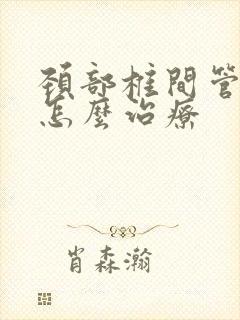 頸部椎間管
怎麼治療
肖森瀚